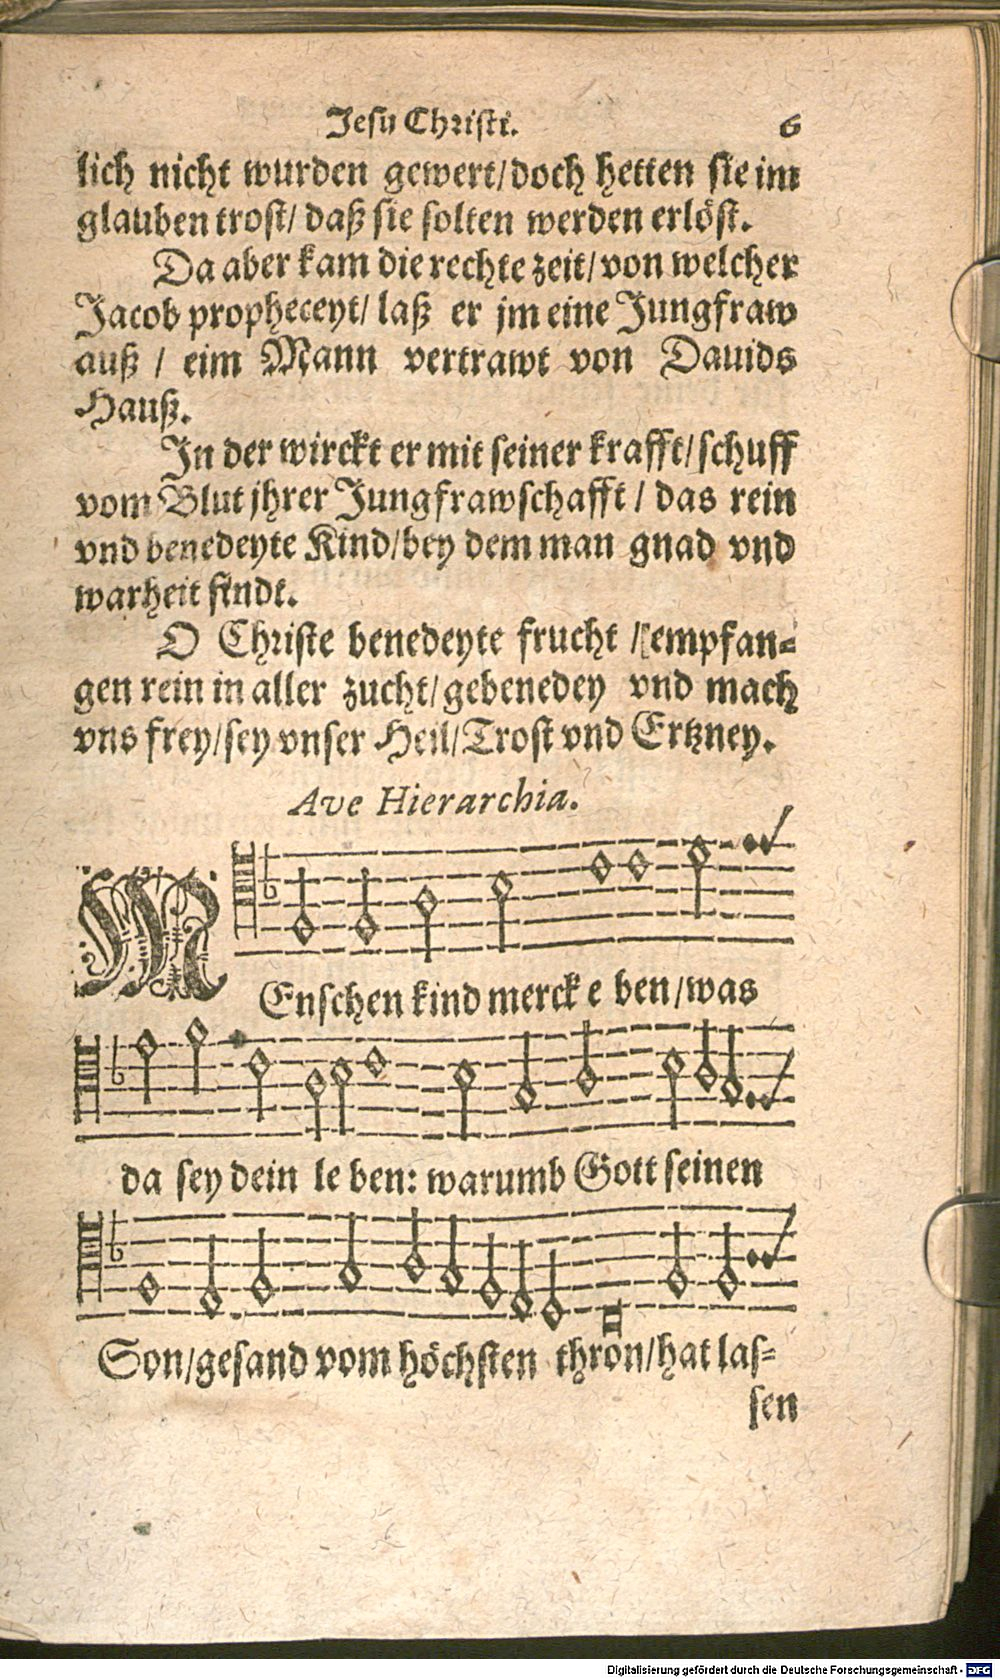 Jesu Christi. 6
lich nicht wurden gewert/doch hetten sie im
glauben trost/ daß sie solten werden erlöst.
Da aber kam die rechte zeit/von welcher
Jacob propheceyt/ laß er jm eine Jungfraw
auß / eim Mann vertrawt von Dauids
Hauß.
In der wirckt er mit seiner krafft/schuff
vom Blut jhrer Jungfrawschafft / das rein
vnd benedeyte Kind/bey dem man gnad vnd
warheit findt.
O Christe benedeyte frucht /empfan=
gen rein in aller zucht/gebenedey vnd mach
vns frey/sey vnser Heil/Trost vnd Ertzney.
Ave Hierarchia.
MEnschen kind merck e ben/was
da sey dein le ben: warumb Gott seinen
Son/gesand vom höchsten thron/hat las=
sen
Digitalisierung gefördert durch die Deutsche Forschungsgemeinschaft - DFG